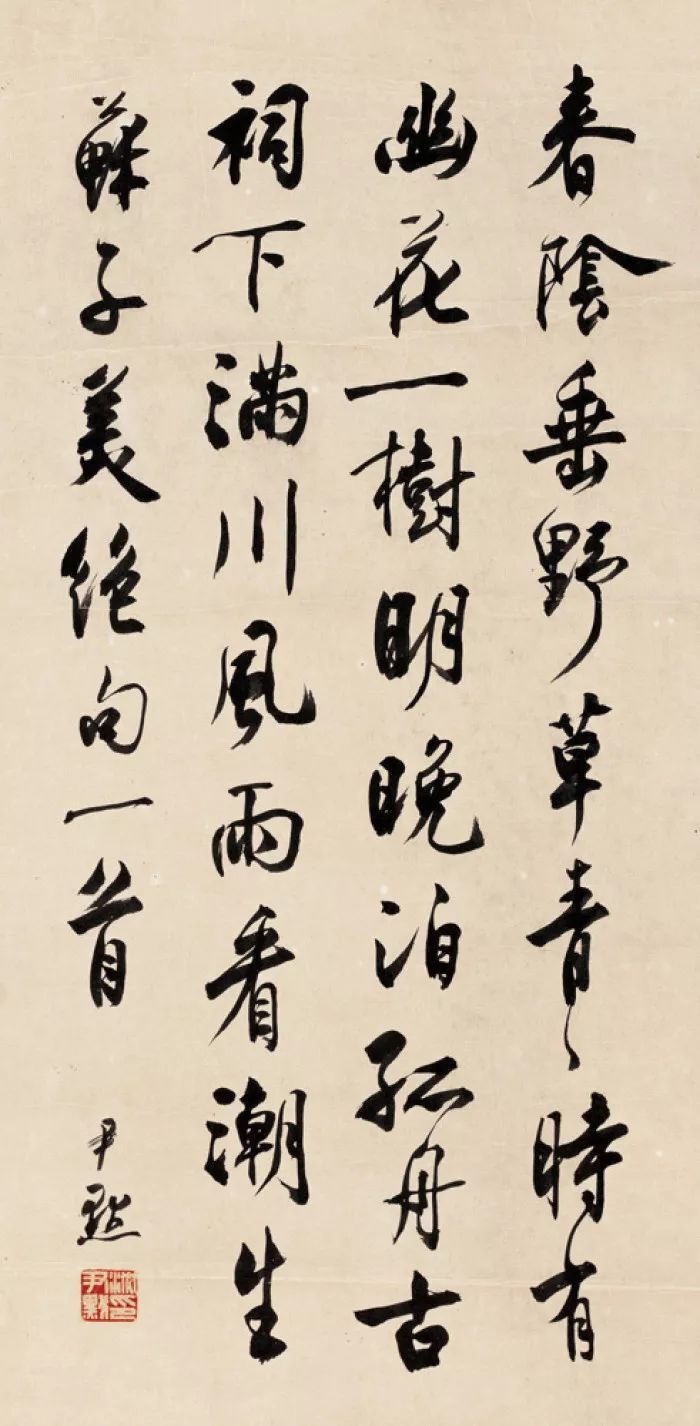 春陰垂野草青〻時有
幽花一樹明晚泊孤舟古
祠下滿川風雨看潮生
蘇子美絕句一首
尹默
沈尹默印